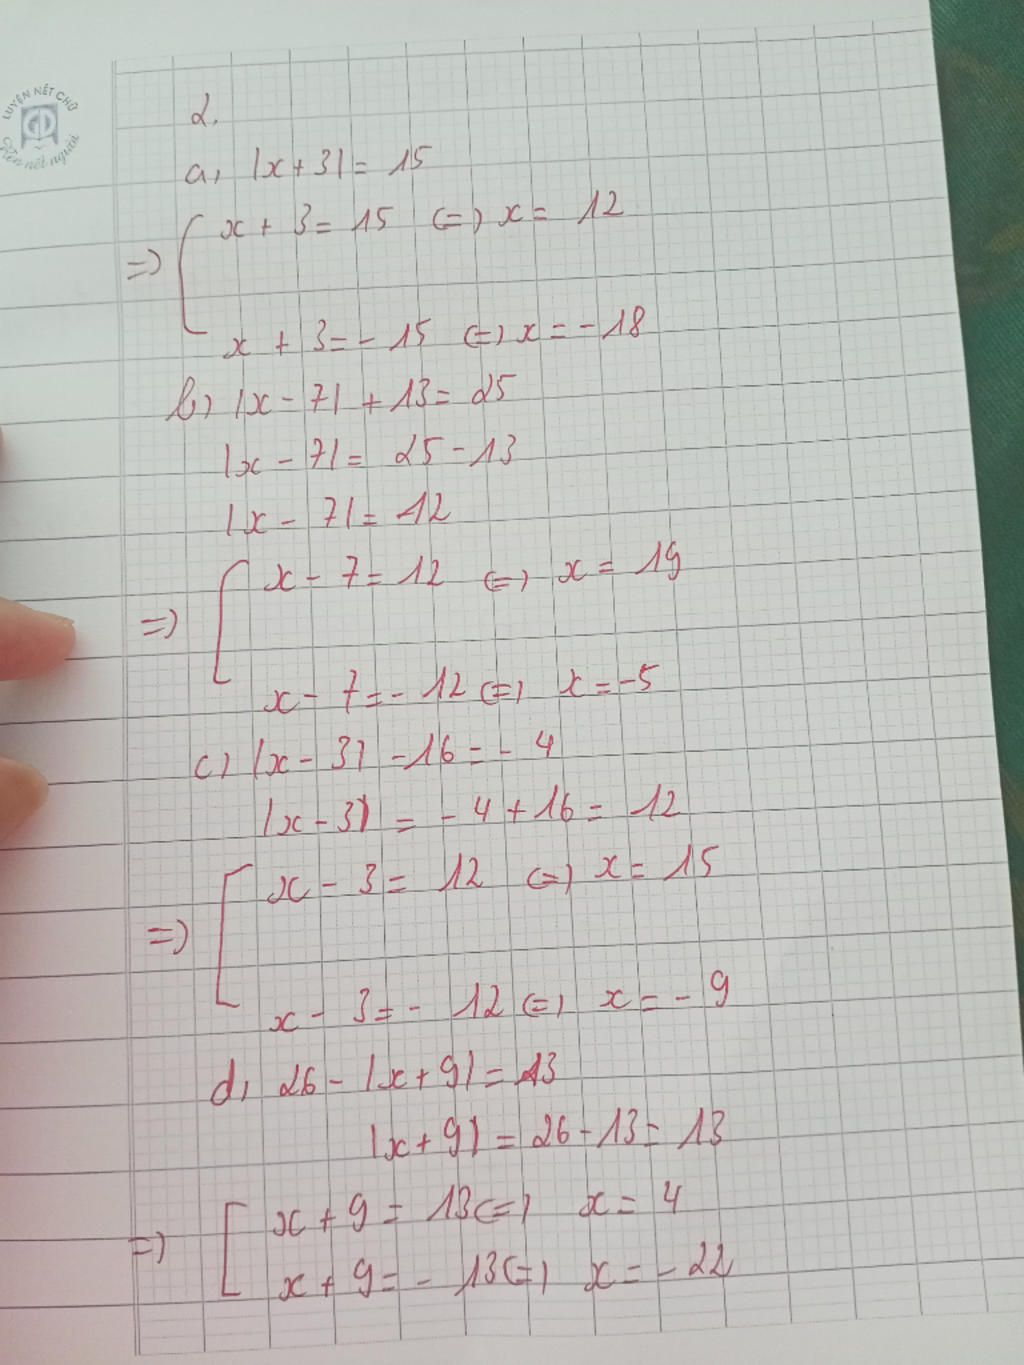 LUYỆN NẾT CHỮ
Rèn nết người
2.
a, |x+3| = 15
=> [ x + 3 = 15 (=) x = 12
x + 3 = - 15 (=) x = - 18
b) |x - 7| + 13 = 25
|x - 7| = 25 - 13
|x - 7| = 12
=> [ x - 7 = 12 (=) x = 19
x - 7 = - 12 (=) x = -5
c) |x - 3| - 16 = - 4
|x - 3| = - 4 + 16 = 12
=> [ x - 3 = 12 (=) x = 15
x - 3 = - 12 (=) x = - 9
d, 26 - |x + 9| = 13
|x + 9| = 26 - 13 = 13
=> [ x + 9 = 13 (=) x = 4
x + 9 = - 13 (=) x = - 22